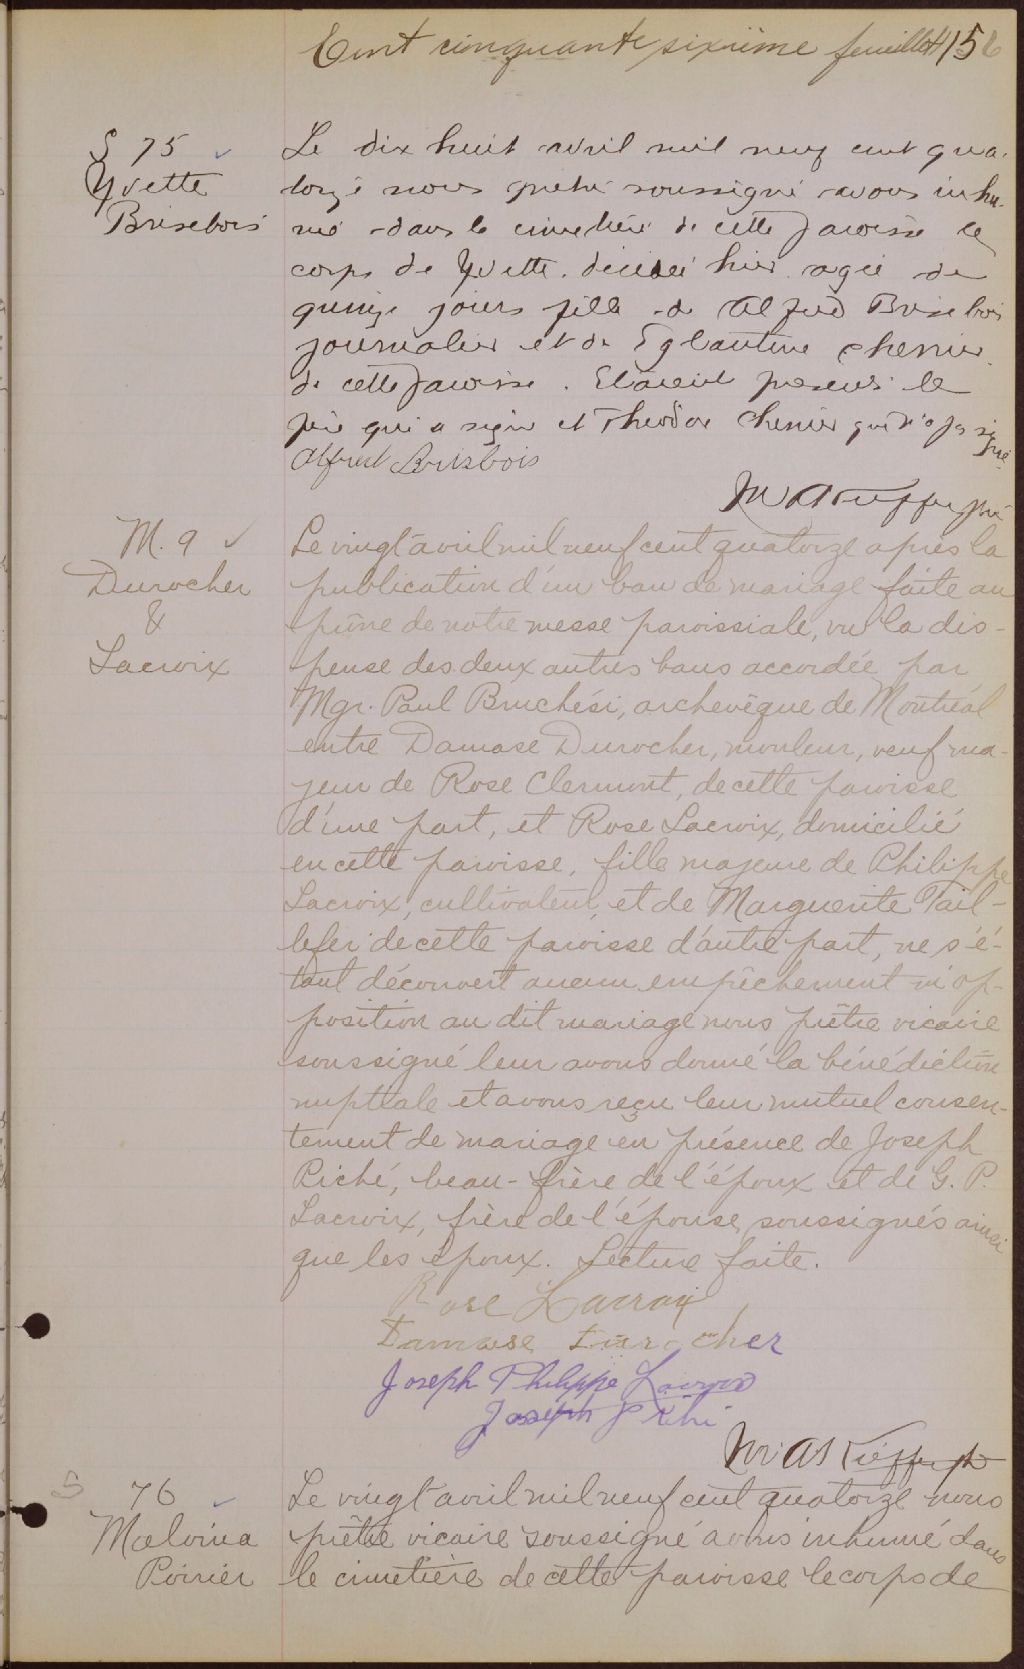 Cent cinquante sixième feuillet 156
S 75
Yvette
Brisebois
Le dix huit avril mil neuf cent qua-
torze nous prêtre soussigné avons inhu-
mé dans le cimetière de cette paroisse le
corps de Yvette décédée hier agée de
quinze jours fille de Alfred Brisebois
journalier et de Eglantine Chenier
de cette paroisse. Etaient présents le
père qui a signé et Theodore Chenier qui n'a pas signé
Alfred Brisbois
M. 9
Durocher
&
Lacroix
Le vingt avril mil neuf cent quatorze après la
publication d'un ban de mariage faite au
prône de notre messe paroissiale, vu la dis-
pense des deux autres bans accordée par
Mgr. Paul Bruchési, archevêque de Montréal
entre Damase Durocher, mouleur, veuf ma-
jeur de Rose Clermont, de cette paroisse
d'une part, et Rose Lacroix, domicilié
en cette paroisse, fille majeure de Philippe
Lacroix, cultivateur, et de Marguerite Tail-
lefer de cette paroisse d'autre part, ne s'é-
tant découvert aucun empêchement ni op-
position au dit mariage nous prêtre vicaire
soussigné leur avons donné la bénédiction
nuptiale et avons reçu leur mutuel consen-
tement de mariage en présence de Joseph
Piché, beau-frère de l'époux et de G. P.
Lacroix, frère de l'épouse soussignés ainsi
que les époux. Lecture faite.
Rose Lacroix
Damase Durocher
Joseph Philippe Lacroix
Joseph
S 76
Malvina
Poirier
Le vingt avril mil neuf cent quatorze nous
prêtre vicaire soussigné avons inhumé dans
le cimetière de cette paroisse le corps de